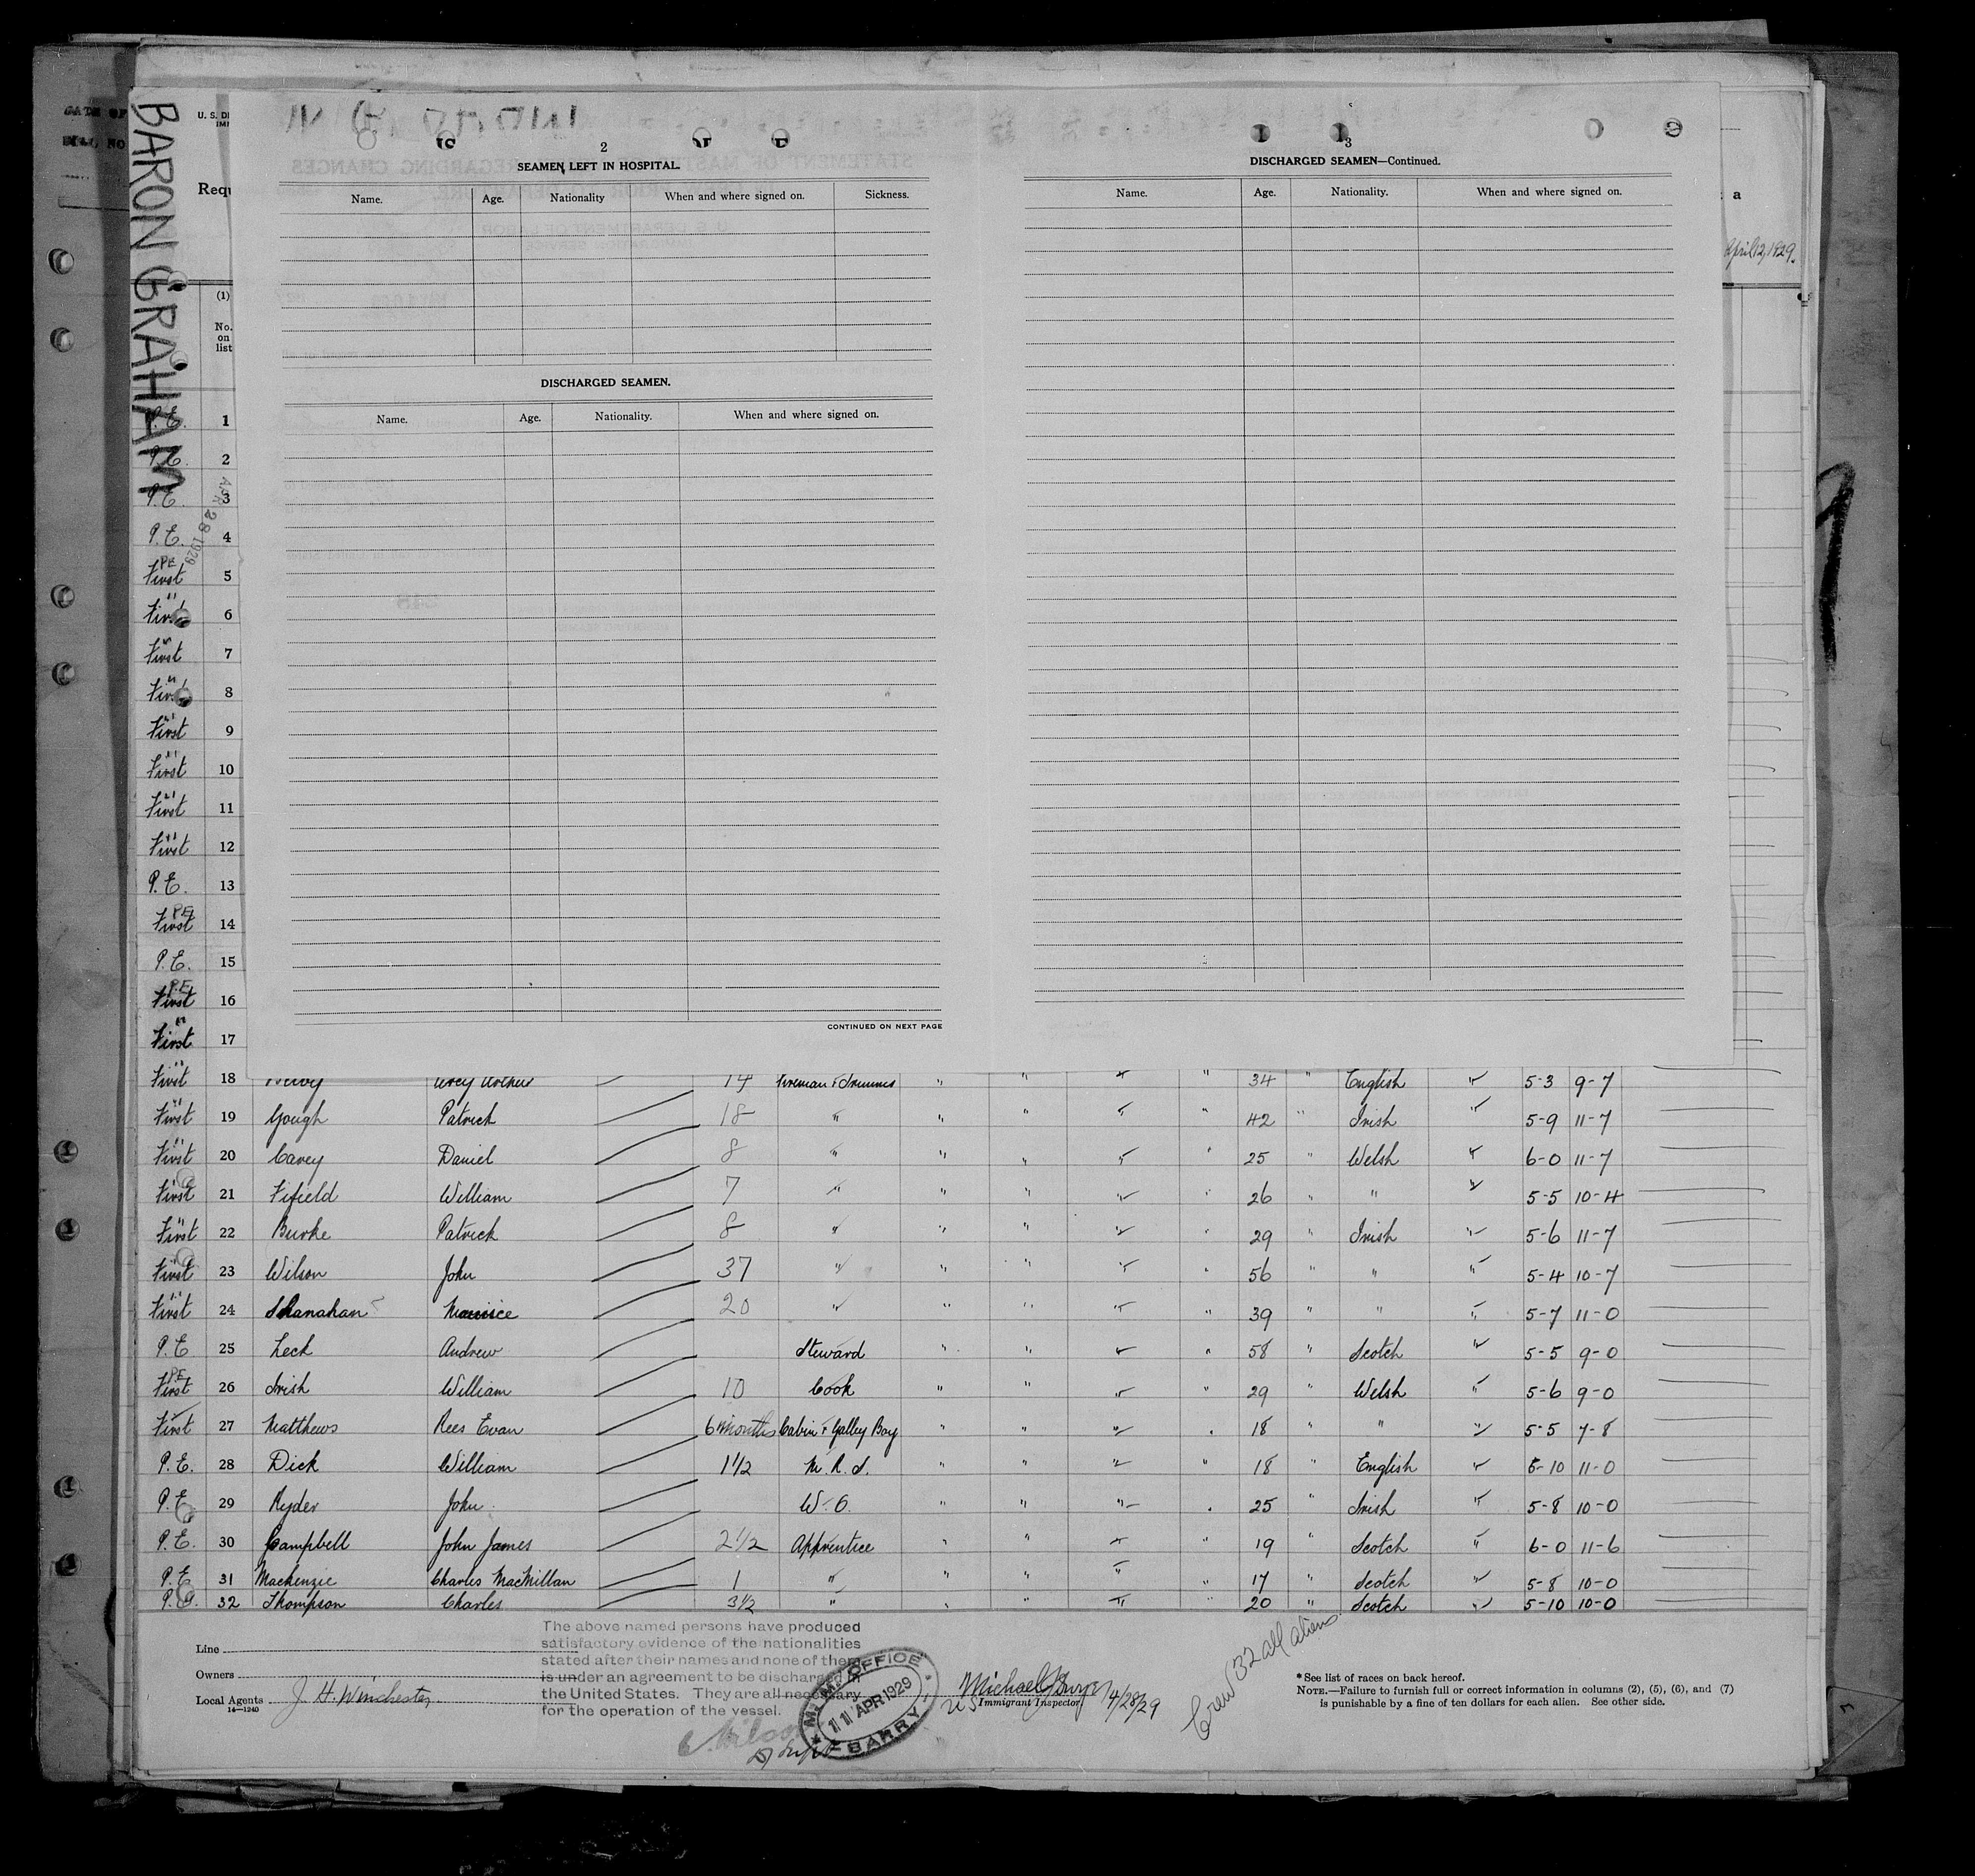 BARON GRAHAM
U. S. D
Requ
April 12, 1929.
2
SEAMEN LEFT IN HOSPITAL.
Name. Age. Nationality When and where signed on. Sickness.
DISCHARGED SEAMEN.
Name. Age. Nationality. When and where signed on.
CONTINUED ON NEXT PAGE
3
DISCHARGED SEAMEN—Continued.
Name. Age. Nationality. When and where signed on.
(1)
No. on list
APR 28 1929
P.E. 1
P.E. 2
P.E. 3
P.E. 4
P.E. First 5
First " 6
First " 7
First " 8
First " 9
First " 10
First " 11
First " 12
P.E. 13
P.E. First 14
P.E. 15
P.E. First 16
First " 17
First " 18 Arthur 14 Fireman & Trimmer " " " " 34 " English " 5-3 9-7
First " 19 Gough Patrick 18 " " " " " 42 " Irish " 5-9 11-7
First " 20 Carey Daniel 8 " " " " " 25 " Welsh " 6-0 11-7
First " 21 Fifield William 7 " " " " " 26 " " " 5-5 10-4
First " 22 Burke Patrick 8 " " " " " 29 " Irish " 5-6 11-7
First " 23 Wilson John 37 " " " " " 56 " " " 5-4 10-7
First " 24 Shanahan Maurice 20 " " " " " 39 " " " 5-7 11-0
P.E. 25 Leck Andrew Steward " " " " 58 " Scotch " 5-5 9-0
P.E. First 26 Irish William 10 Cook " " " " 29 " Welsh " 5-6 9-0
First 27 Matthews Rees Evan 6 months Cabin & Galley Boy " " " " 18 " " " 5-5 7-8
P.E. 28 Dick William 1½ M.R.S. " " " " 18 " English " 5-10 11-0
P.E. 29 Ryder John W.O. " " " " 25 " Irish " 5-8 10-0
P.E. 30 Campbell John James 2½ Apprentice " " " " 19 " Scotch " 6-0 11-6
P.E. 31 Mackenzie Charles MacMillan 1 " " " " " 17 " Scotch " 5-8 10-0
P.E. 32 Thompson Charles 3½ " " " " " 20 " Scotch " 5-10 10-0
Line
Owners
Local Agents J. H. Winchester
14—1240
The above named persons have produced
satisfactory evidence of the nationalities
stated after their names and none of them
is under an agreement to be discharged in
the United States. They are all necessary
for the operation of the vessel.
M. M. OFFICE
11 APR 1929
BARRY
Michael
U S Immigrant Inspector 4/28/29
Crew 32 all aliens.
* See list of races on back hereof.
NOTE.—Failure to furnish full or correct information in columns (2), (5), (6), and (7)
is punishable by a fine of ten dollars for each alien. See other side.